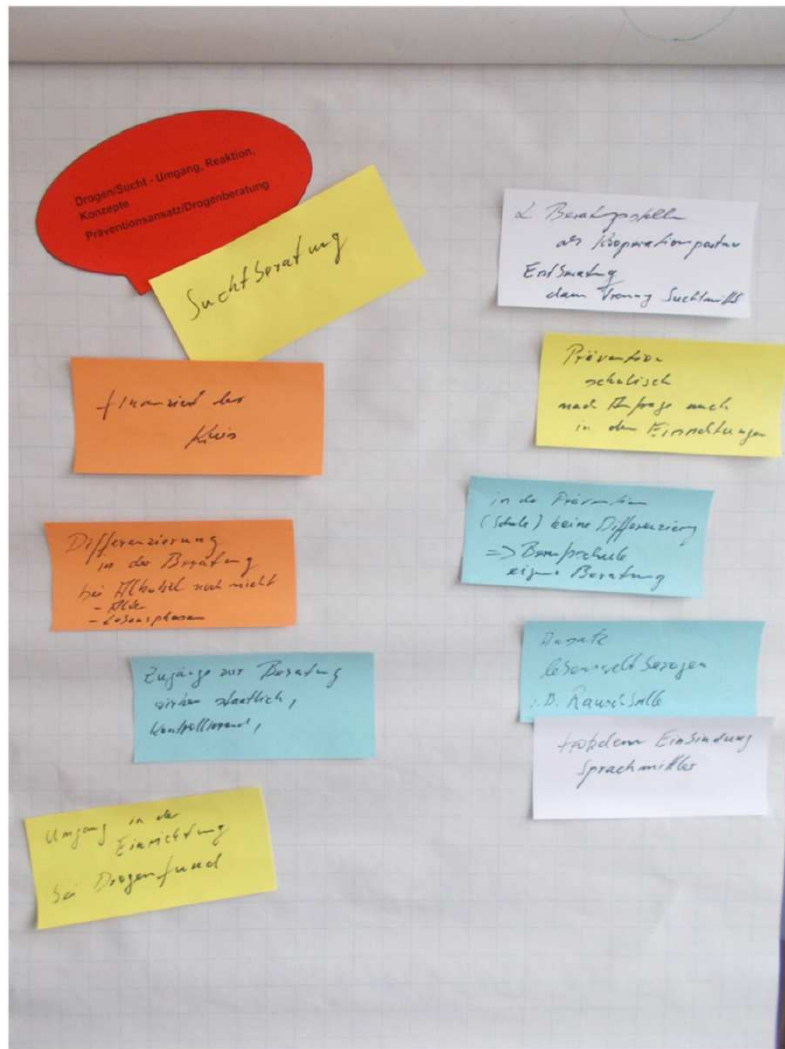 Drogen/Sucht - Umgang, Reaktion,
Konzepte
Präventionsansatz/Drogenberatung
Suchtberatung
finanziert der
Kreis
Differenzierung
in der Beratung
bei Alkohol noch nicht
- Alter
- Lebensphasen
Zugänge zur Beratung
wirken staatlich,
kontrollierend,
Umgang in der
Einrichtung
bei Drogenfund
2 Beratungsstellen
als Kooperationspartner
Erstberatung
dann Trennung Suchtmittel
Prävention
schulisch
nach Anfrage auch
in den Einrichtungen
in der Prävention
(Schule) keine Differenzierung
=> Berufsschule
eigene Beratung
Ansatz
lebensweltbezogen
z.B. Rauschbrille
trotzdem Einbindung
Sprachmittler